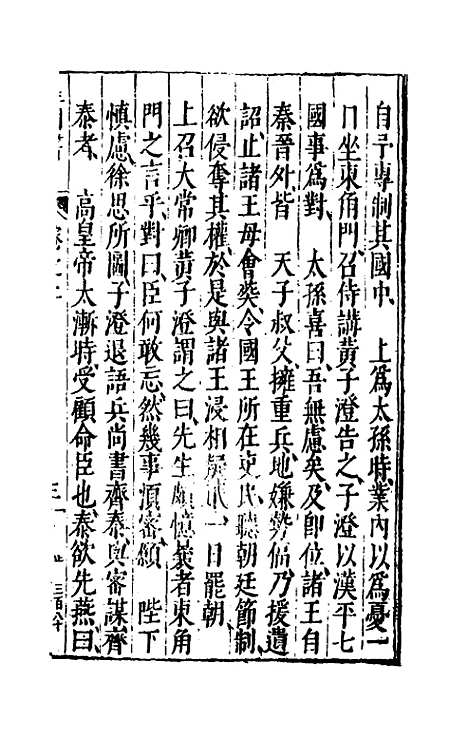 自予專制其國中　上爲太孫時業內以爲憂一
日坐東角門召侍講黃子澄告之子澄以漢平七
國事爲對　太孫喜曰吾無慮矣及卽位諸王自
秦晉外皆　天子叔父擁重兵地嫌勢偪乃援遺
詔止諸王母會葬令國王所在吏民聽朝廷節制
欲侵奪其權於是與諸王浸相疑貳一日罷朝
上召太常卿黃子澄謂之曰先生頗憶曩者東角
門之言乎對曰臣何敢忘然幾事須密願　陛下
慎慮徐思所圖子澄退語兵尚書齊泰與審謀齊
泰者　高皇帝太漸時受顧命臣也泰欲先燕曰